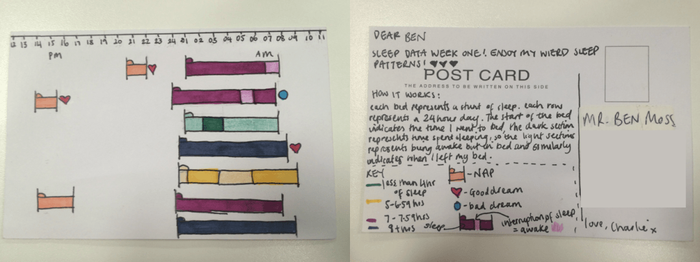 12 13 14 15 16 17 18 19 20 21 22 23 24 01 02 03 04 05 06 07 08 09 10 11
PM
AM
DEAR BEN
SLEEP DATA WEEK ONE! ENJOY MY WIERD SLEEP
PATTERNS!
POST CARD
THE ADDRESS TO BE WRITTEN ON THIS SIDE
HOW IT WORKS:
each bed represents a stunt of sleep. each row
represents a 24 hour day. The start of the bed
indicates the time I went to bed, the dark section
represents huge spent sleeping, so the light sections
represents being awake but in bed and similarly
indicates when I left my bed.
KEY
less than 4hrs
of sleep
5-6.59hrs
7-7.59hrs
8+hrs
sleep
- NAP
- Good dream
- bad dream
interruption of sleep,
= awake
MR. BEN MOSS
love, Charlie x